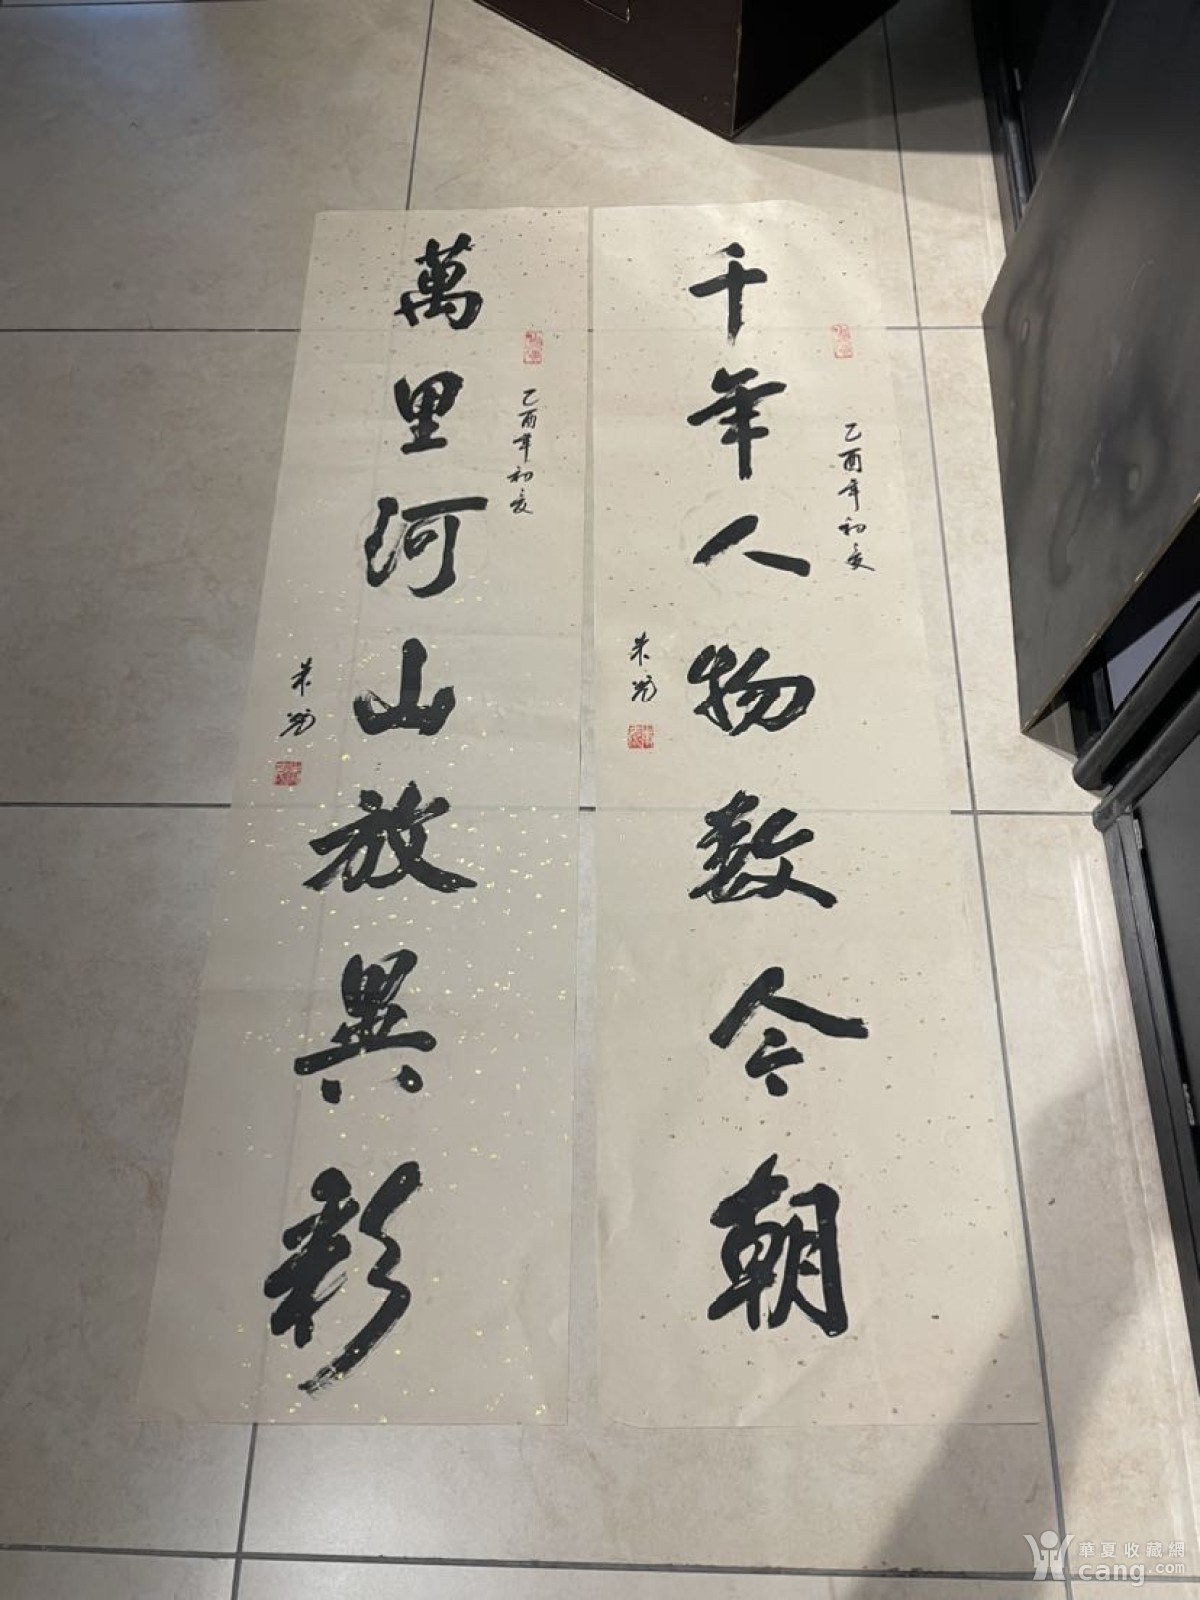 千年人物数今朝
乙酉年初夏
朱
萬里河山放異彩
乙酉年初夏
朱
華夏收藏網
cang.com